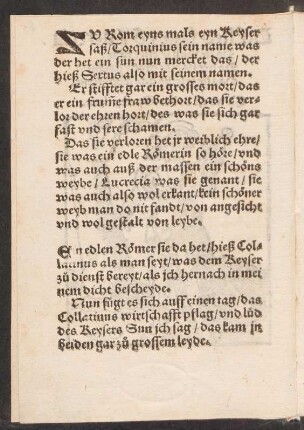 ZU Rom eyns mals eyn Keyser
saß/Torquinius sein name was
der het ein sun nun mercket das/der
hieß Sextus also mit seinem namen.
Er stifftet gar ein grosses mort/das
er ein frume fraw bethort/das sie ver-
lor der ehren hort/des was sie sich gar
fast vnd sere schamen.
Das sie verloren het jr weiblich ehre/
sie was ein edle Römerin so höre/vnd
was auch auß der massen ein schöns
weybe/Lucrecia was sie genant/sie
was auch also wol erkant/kein schöner
weyb man do nit fandt/von angesicht
vnd wol gestalt von leybe.
Ein edlen Römer sie da het/hieß Col-
latinus als man seyt/was dem Keyser
zů dienst bereyt/als ich hernach in mei
nem dicht bescheyde.
Nun fügt es sich auff einen tag/das
Collatinus wirtschafft pflag/vnd lůd
des Keysers Sun ich sag/das kam jn
beiden gar zů grossem leyde.